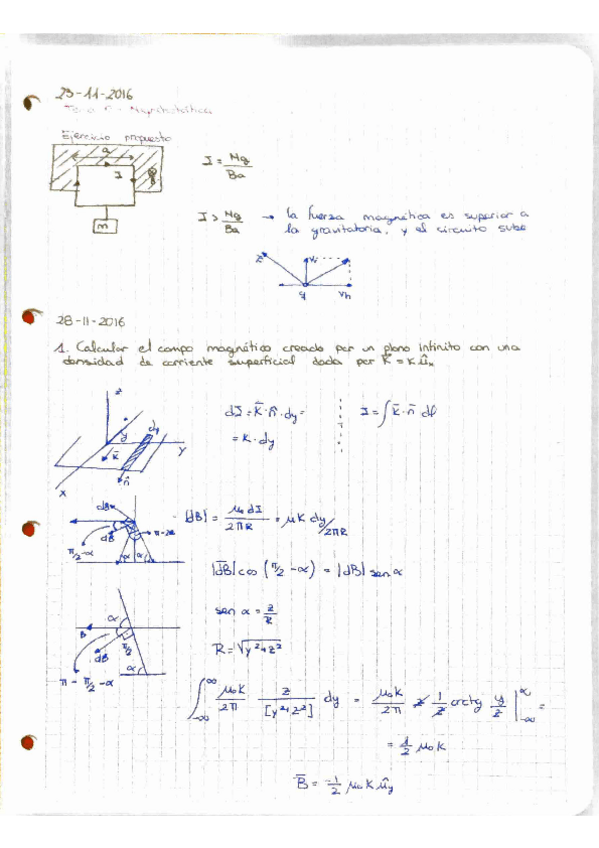 23-11-2016
Magnetostática
Ejercicio propuesto
a
I
m
I = Mg/Ba
I > Mg/Ba → la fuerza magnética es superior a
la gravitatoria, y el circuito sube
Vi
q
Vh
28-11-2016
1. Calcular el campo magnético creado por un plano infinito con una
densidad de corriente superficial dada por K̄ = K û
z
y
dy
K̄
n̂
Y
X
dI = K̄ · n̂ · dy =
= K · dy
I = ∫ K̄ · n̂ dl
dB
dB
π/2 - α
α α
π - 2α
|dB| = μ₀ dI / 2πR = μK dy / 2πR
|dB̄| cos (π/2 - α) = |dB| sen α
α
B
π/2
dB
α
π - π/2 - α
sen α = z/R
R = √(y² + z²)
∫_{-∞}^{∞} μ₀K/2π z/[y² + z²] dy = μ₀K/2π z 1/z arctg y/z |_{-∞}^{∞} =
= 1/2 μ₀K
B̄ = -1/2 μ₀ K û_y